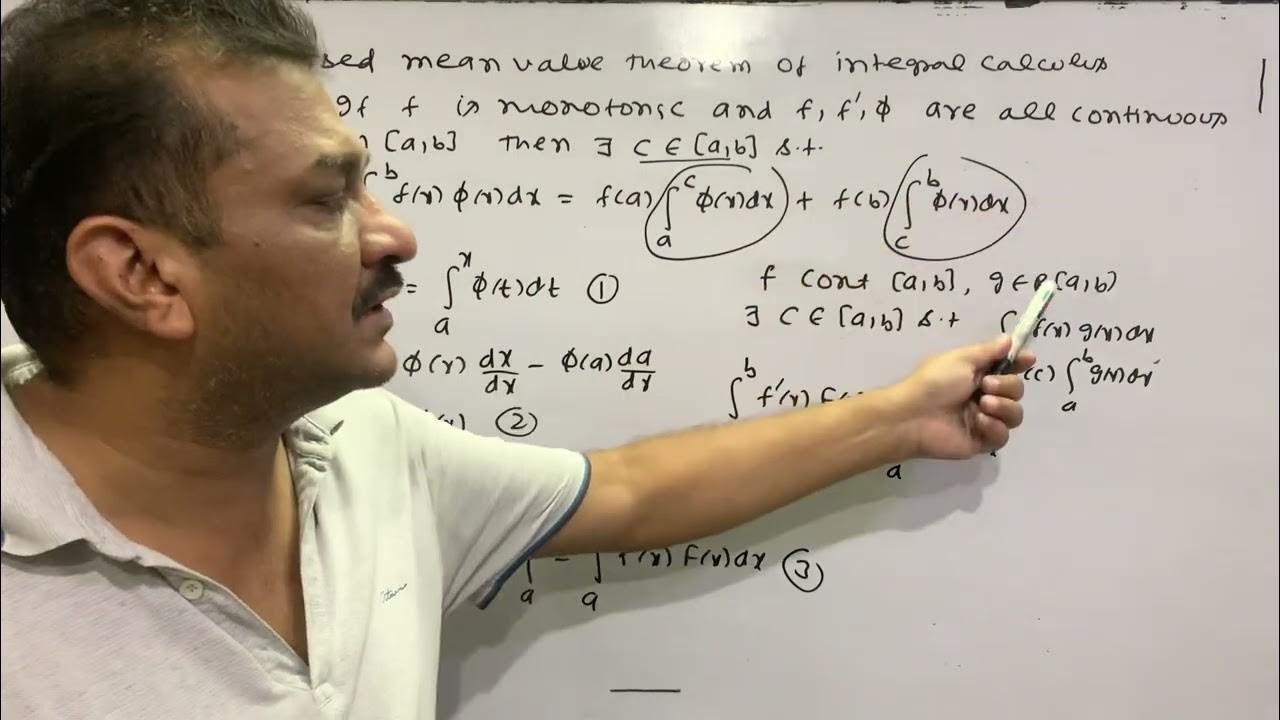 sed mean value theorem of integral calculus
If f is monotonic and f, f', ϕ are all continuous
[a,b] then ∃ c ∈ [a,b] s.t.
∫ᵇ f(x) ϕ(x) dx = f(a) ∫ₐᶜ ϕ(x) dx + f(b) ∫_c^b ϕ(x) dx
= ∫ₐˣ ϕ(t) dt ①
f cont [a,b], g ∈ [a,b]
∃ c ∈ [a,b] s.t f(x) g(x) dx
ϕ(x) dx/dx − ϕ(a) da/dx
(c) ∫ₐᵇ g(x) dx
∫ᵇ f'(x) F
(x) ②
a
a − ∫ₐ (x) F(x) dx ③